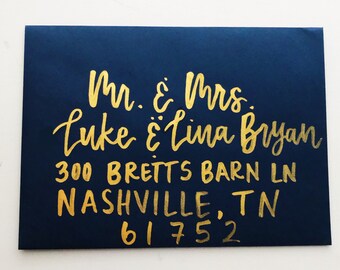 Mr. & Mrs.
Luke & Lina Bryan
300 BRETTS BARN LN
NASHVILLE, TN
61752